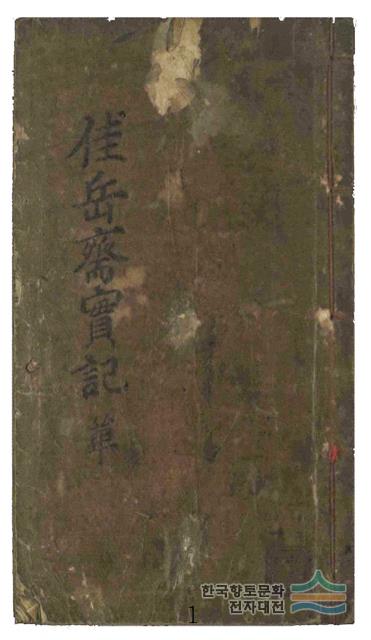 佳岳齋實記 單
1
한국향토문화
전자대전